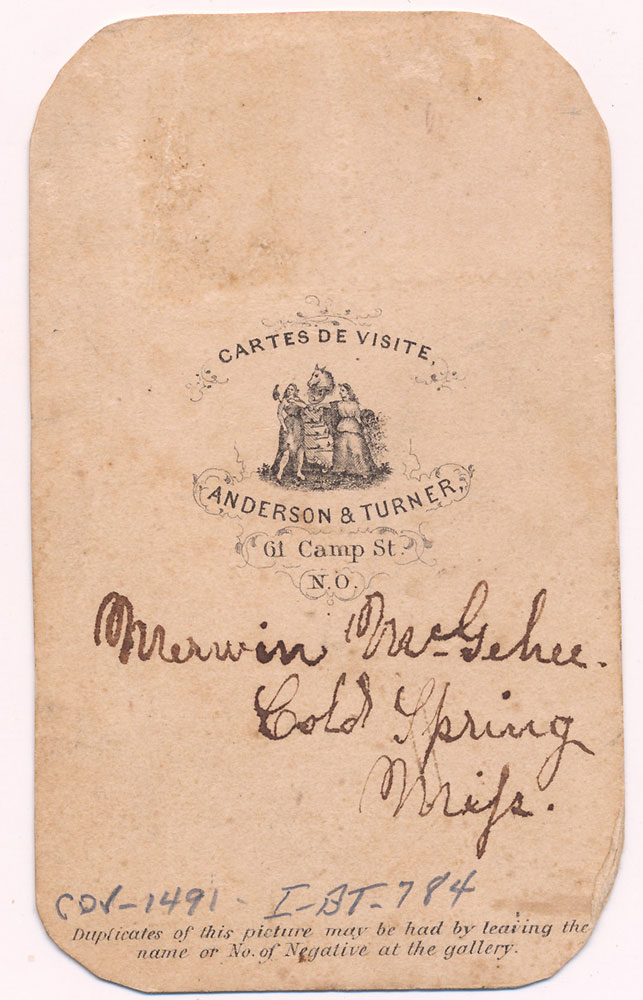 CARTES DE VISITE,
ANDERSON & TURNER,
61 Camp St.
N.O.
Merwin McGehee.
Cold Spring
Miss.
CDV-1491- I-BT-784
Duplicates of this picture may be had by leaving the
name or No. of Negative at the gallery.